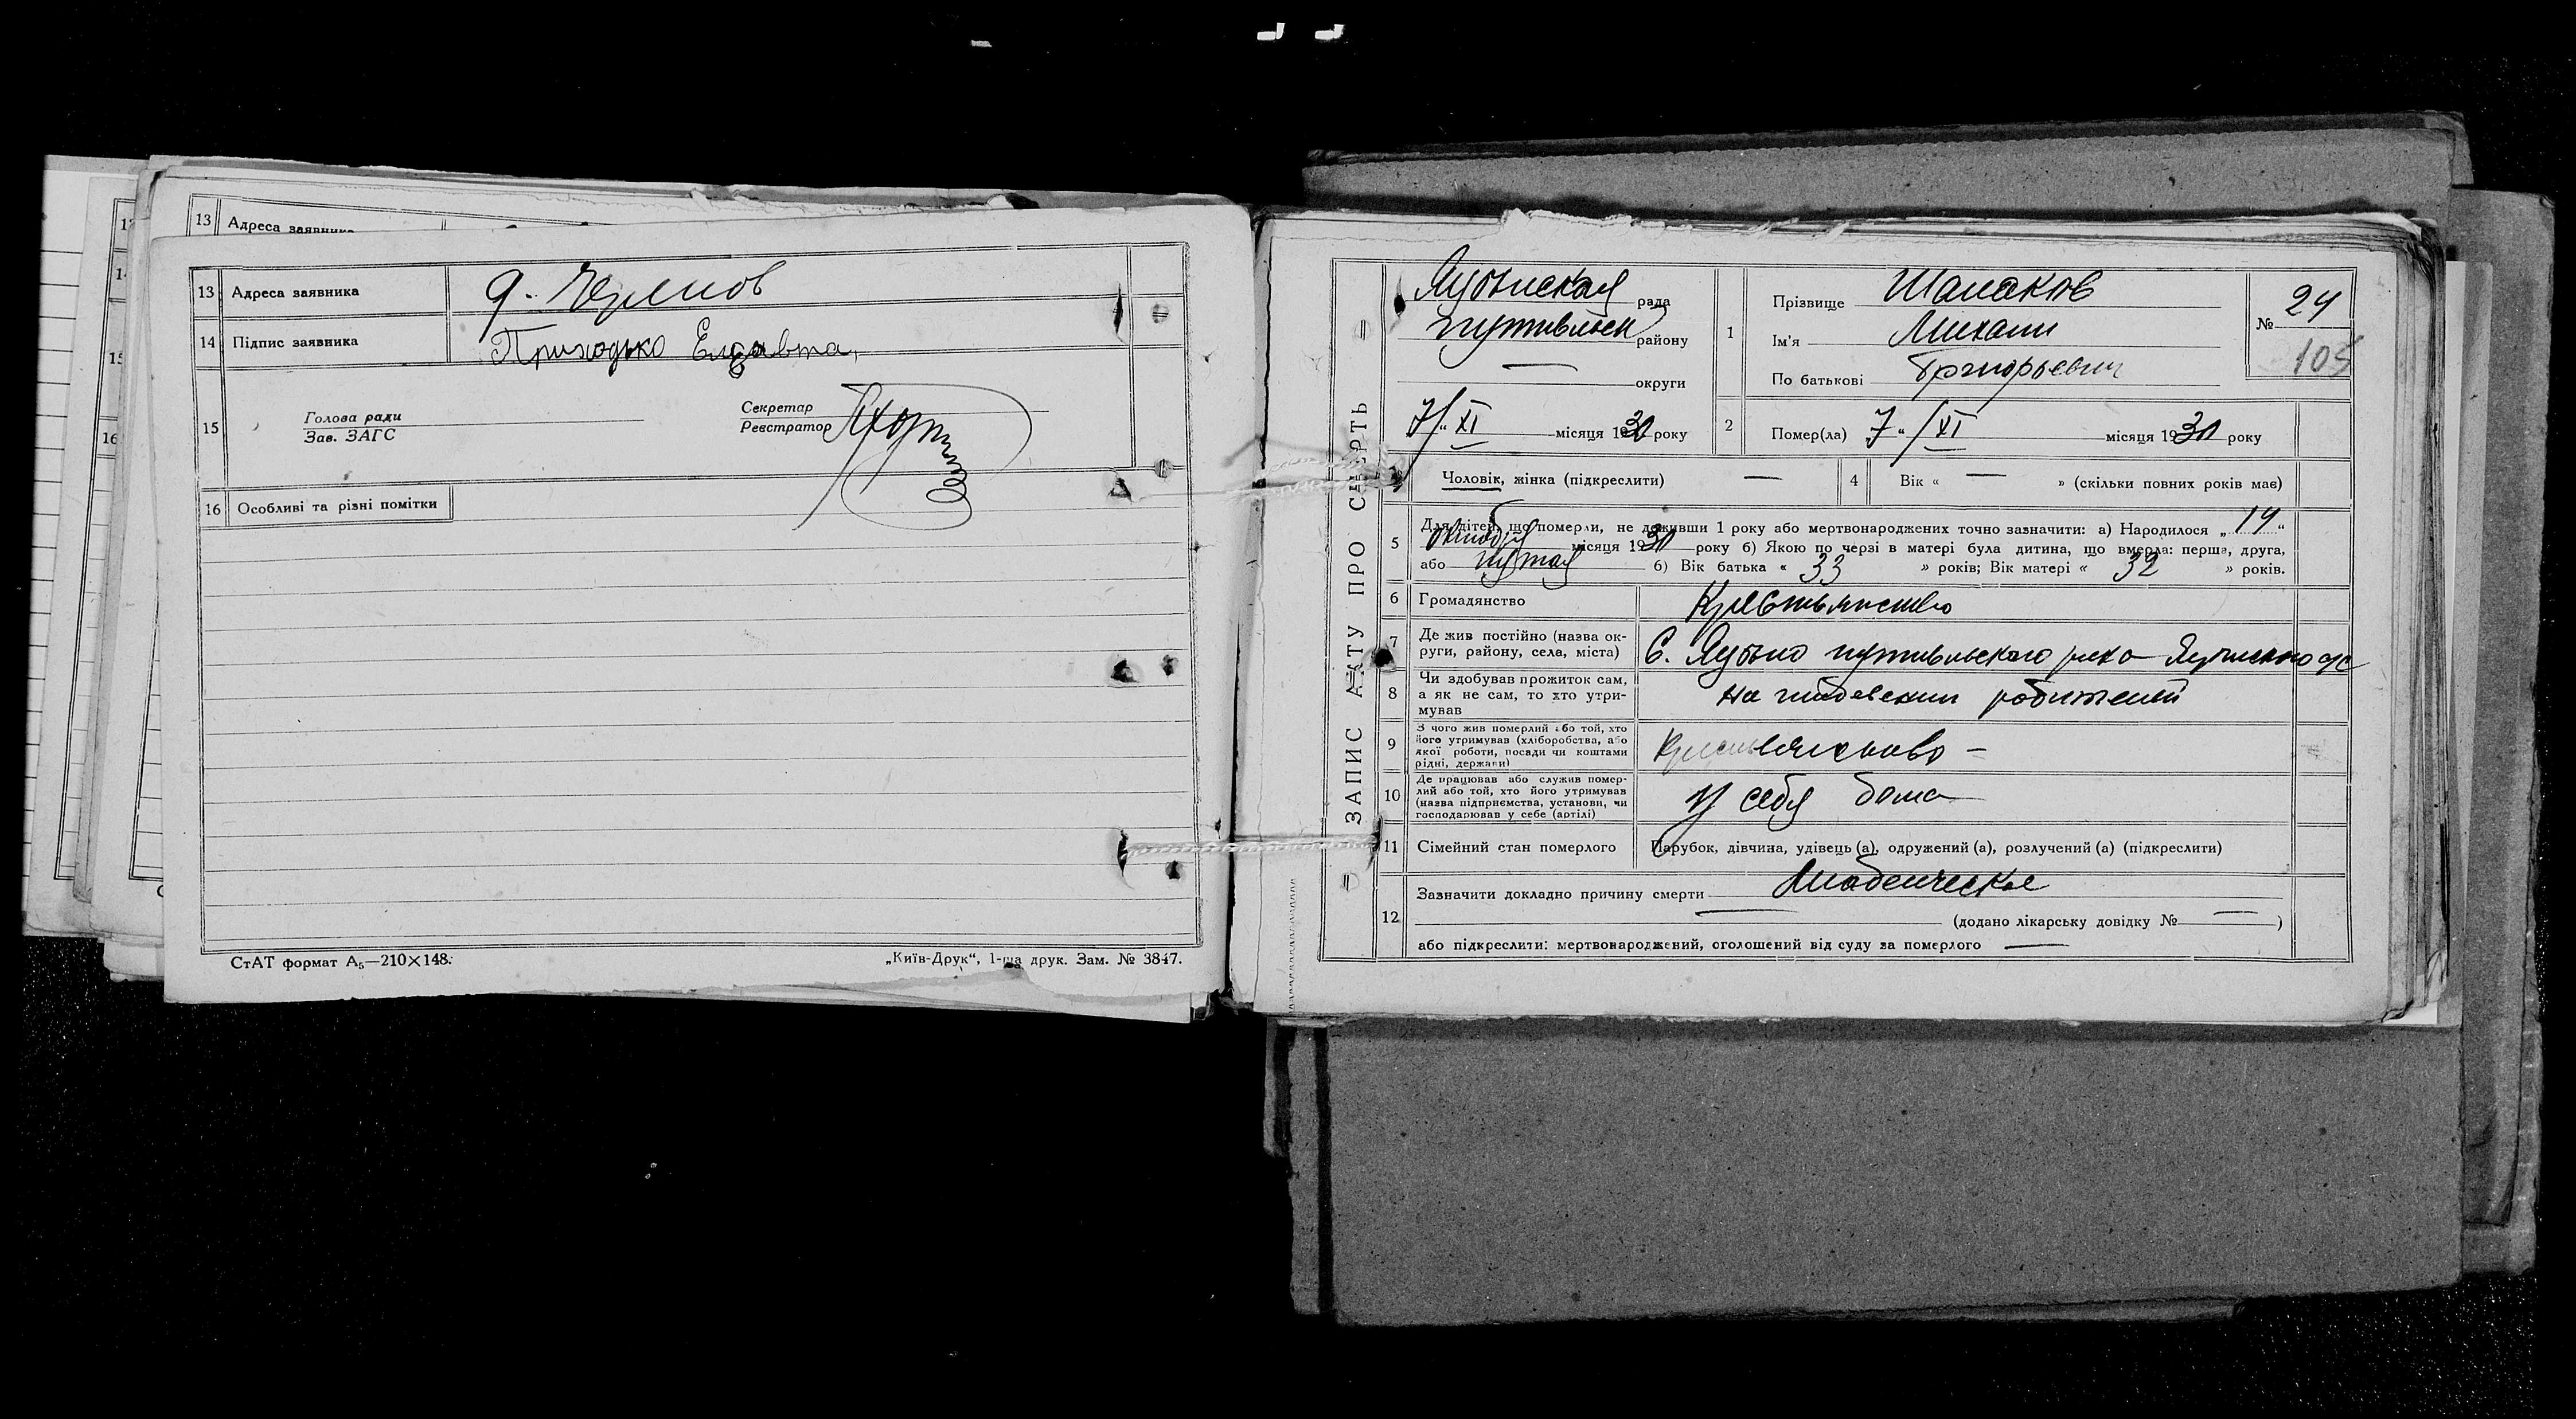 13 Адреса заявника
13 Адреса заявника д. Черепов
14 Підпис заявника Приходько Елезавта,
15 Голова ради
Зав. ЗАГС
Секретар
Реєстратор
16 Особливі та різні помітки
СтАТ формат А5—210×148.
„Київ-Друк“, 1-ша друк. Зам. № 3847.
ЗАПИС АКТУ ПРО СМЕРТЬ
Яцынская рада
Путивльск району
— округи
7/„ XI місяця 1930 року
1 Прізвище Шалаков
Ім'я Михаил
По батькові Григорьевич
№ 24
105
2 Помер(ла) „7“ / XI місяця 1930 року
3 Чоловік, жінка (підкреслити) —
4 Вік « — » (скільки повних років має)
5 Для дітей, що померли, не доживши 1 року або мертвонароджених точно зазначити: а) Народилося „ 14 “
Октября місяця 1930 року б) Якою по черзі в матері була дитина, що вмерла: перша, друга,
або пятая б) Вік батька « 33 » років; Вік матері « 32 » років.
6 Громадянство Крестьянство
7 Де жив постійно (назва ок-
руги, району, села, міста) С. Яцыно путивльского р-на Яцынского с/с
8 Чи здобував прожиток сам,
а як не сам, то хто утри-
мував на иждевении родителей
9 З чого жив померлий або той, хто
його утримував (хліборобства, або
якої роботи, посади чи коштами
рідні, держави)
10 Де працював або служив помер-
лий або той, хто його утримував
(назва підприємства, установи, чи
господарював у себе (артілі) у себя дома
11 Сімейний стан померлого Парубок, дівчина, удівець (а), одружений (а), розлучений (а) (підкреслити)
12 Зазначити докладно причину смерти Младенческое
— (додано лікарську довідку № — )
або підкреслити: мертвонароджений, оголошений від суду за померлого —